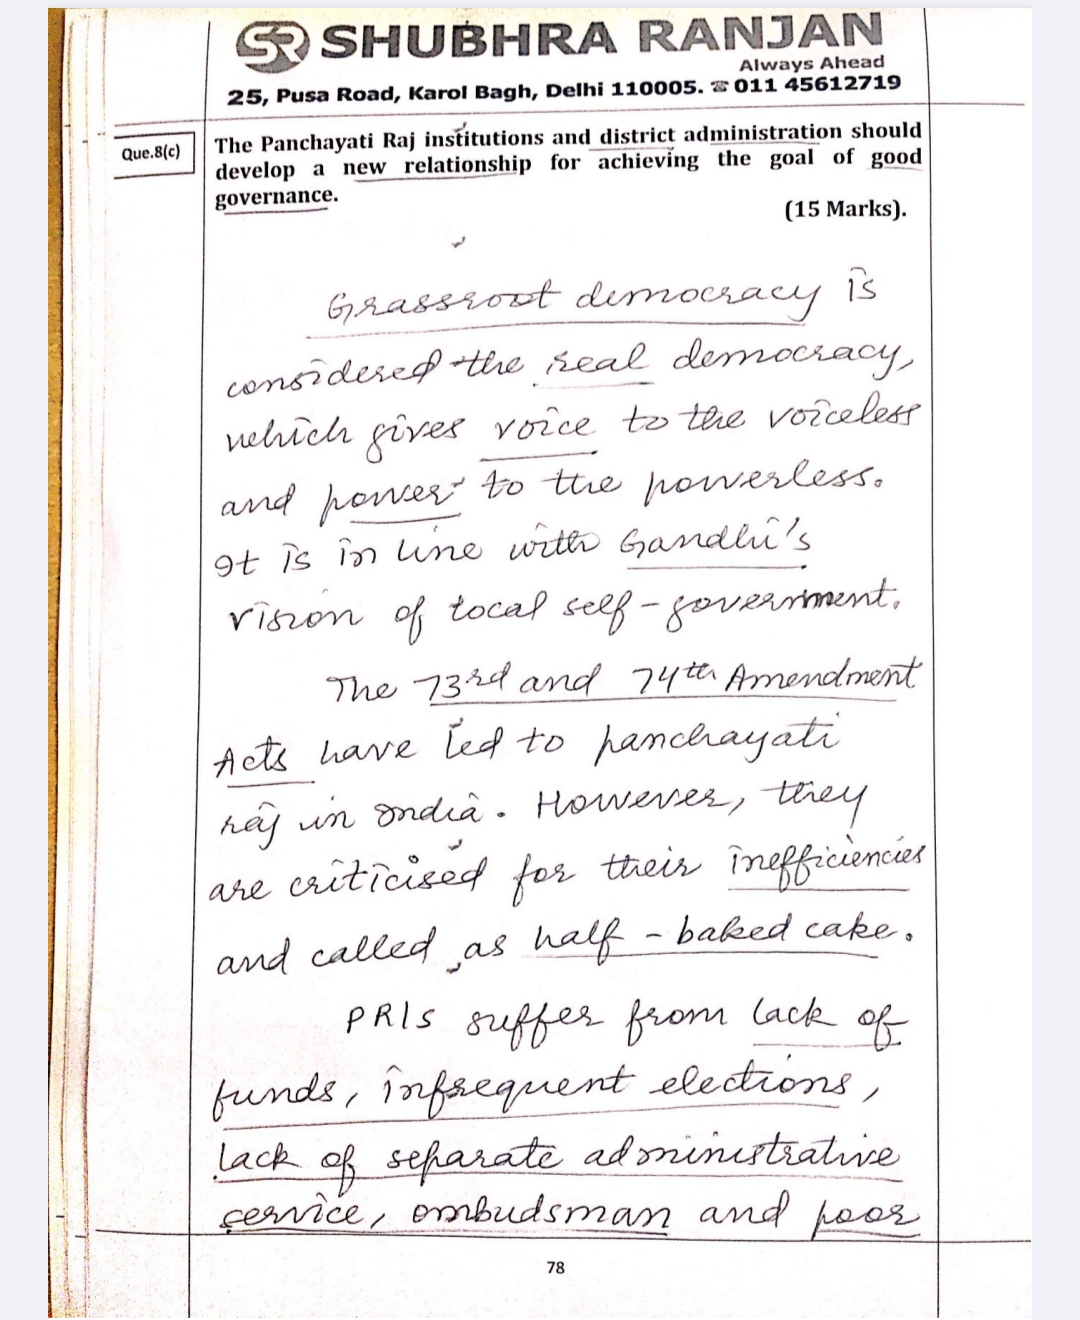 SR SHUBHRA RANJAN
Always Ahead
25, Pusa Road, Karol Bagh, Delhi 110005. ☎ 011 45612719
Que.8(c)
The Panchayati Raj institutions and district administration should
develop a new relationship for achieving the goal of good
governance.
(15 Marks).
Grassroot democracy is
considered the real democracy,
which gives voice to the voiceless
and power to the powerless.
It is in line with Gandhi's
vision of local self-government.
The 73rd and 74th Amendment
Acts have led to panchayati
raj in India. However, they
are criticised for their inefficiencies
and called as half-baked cake.
PRIs suffer from lack of
funds, infrequent elections,
lack of separate administrative
service, ombudsman and poor
78